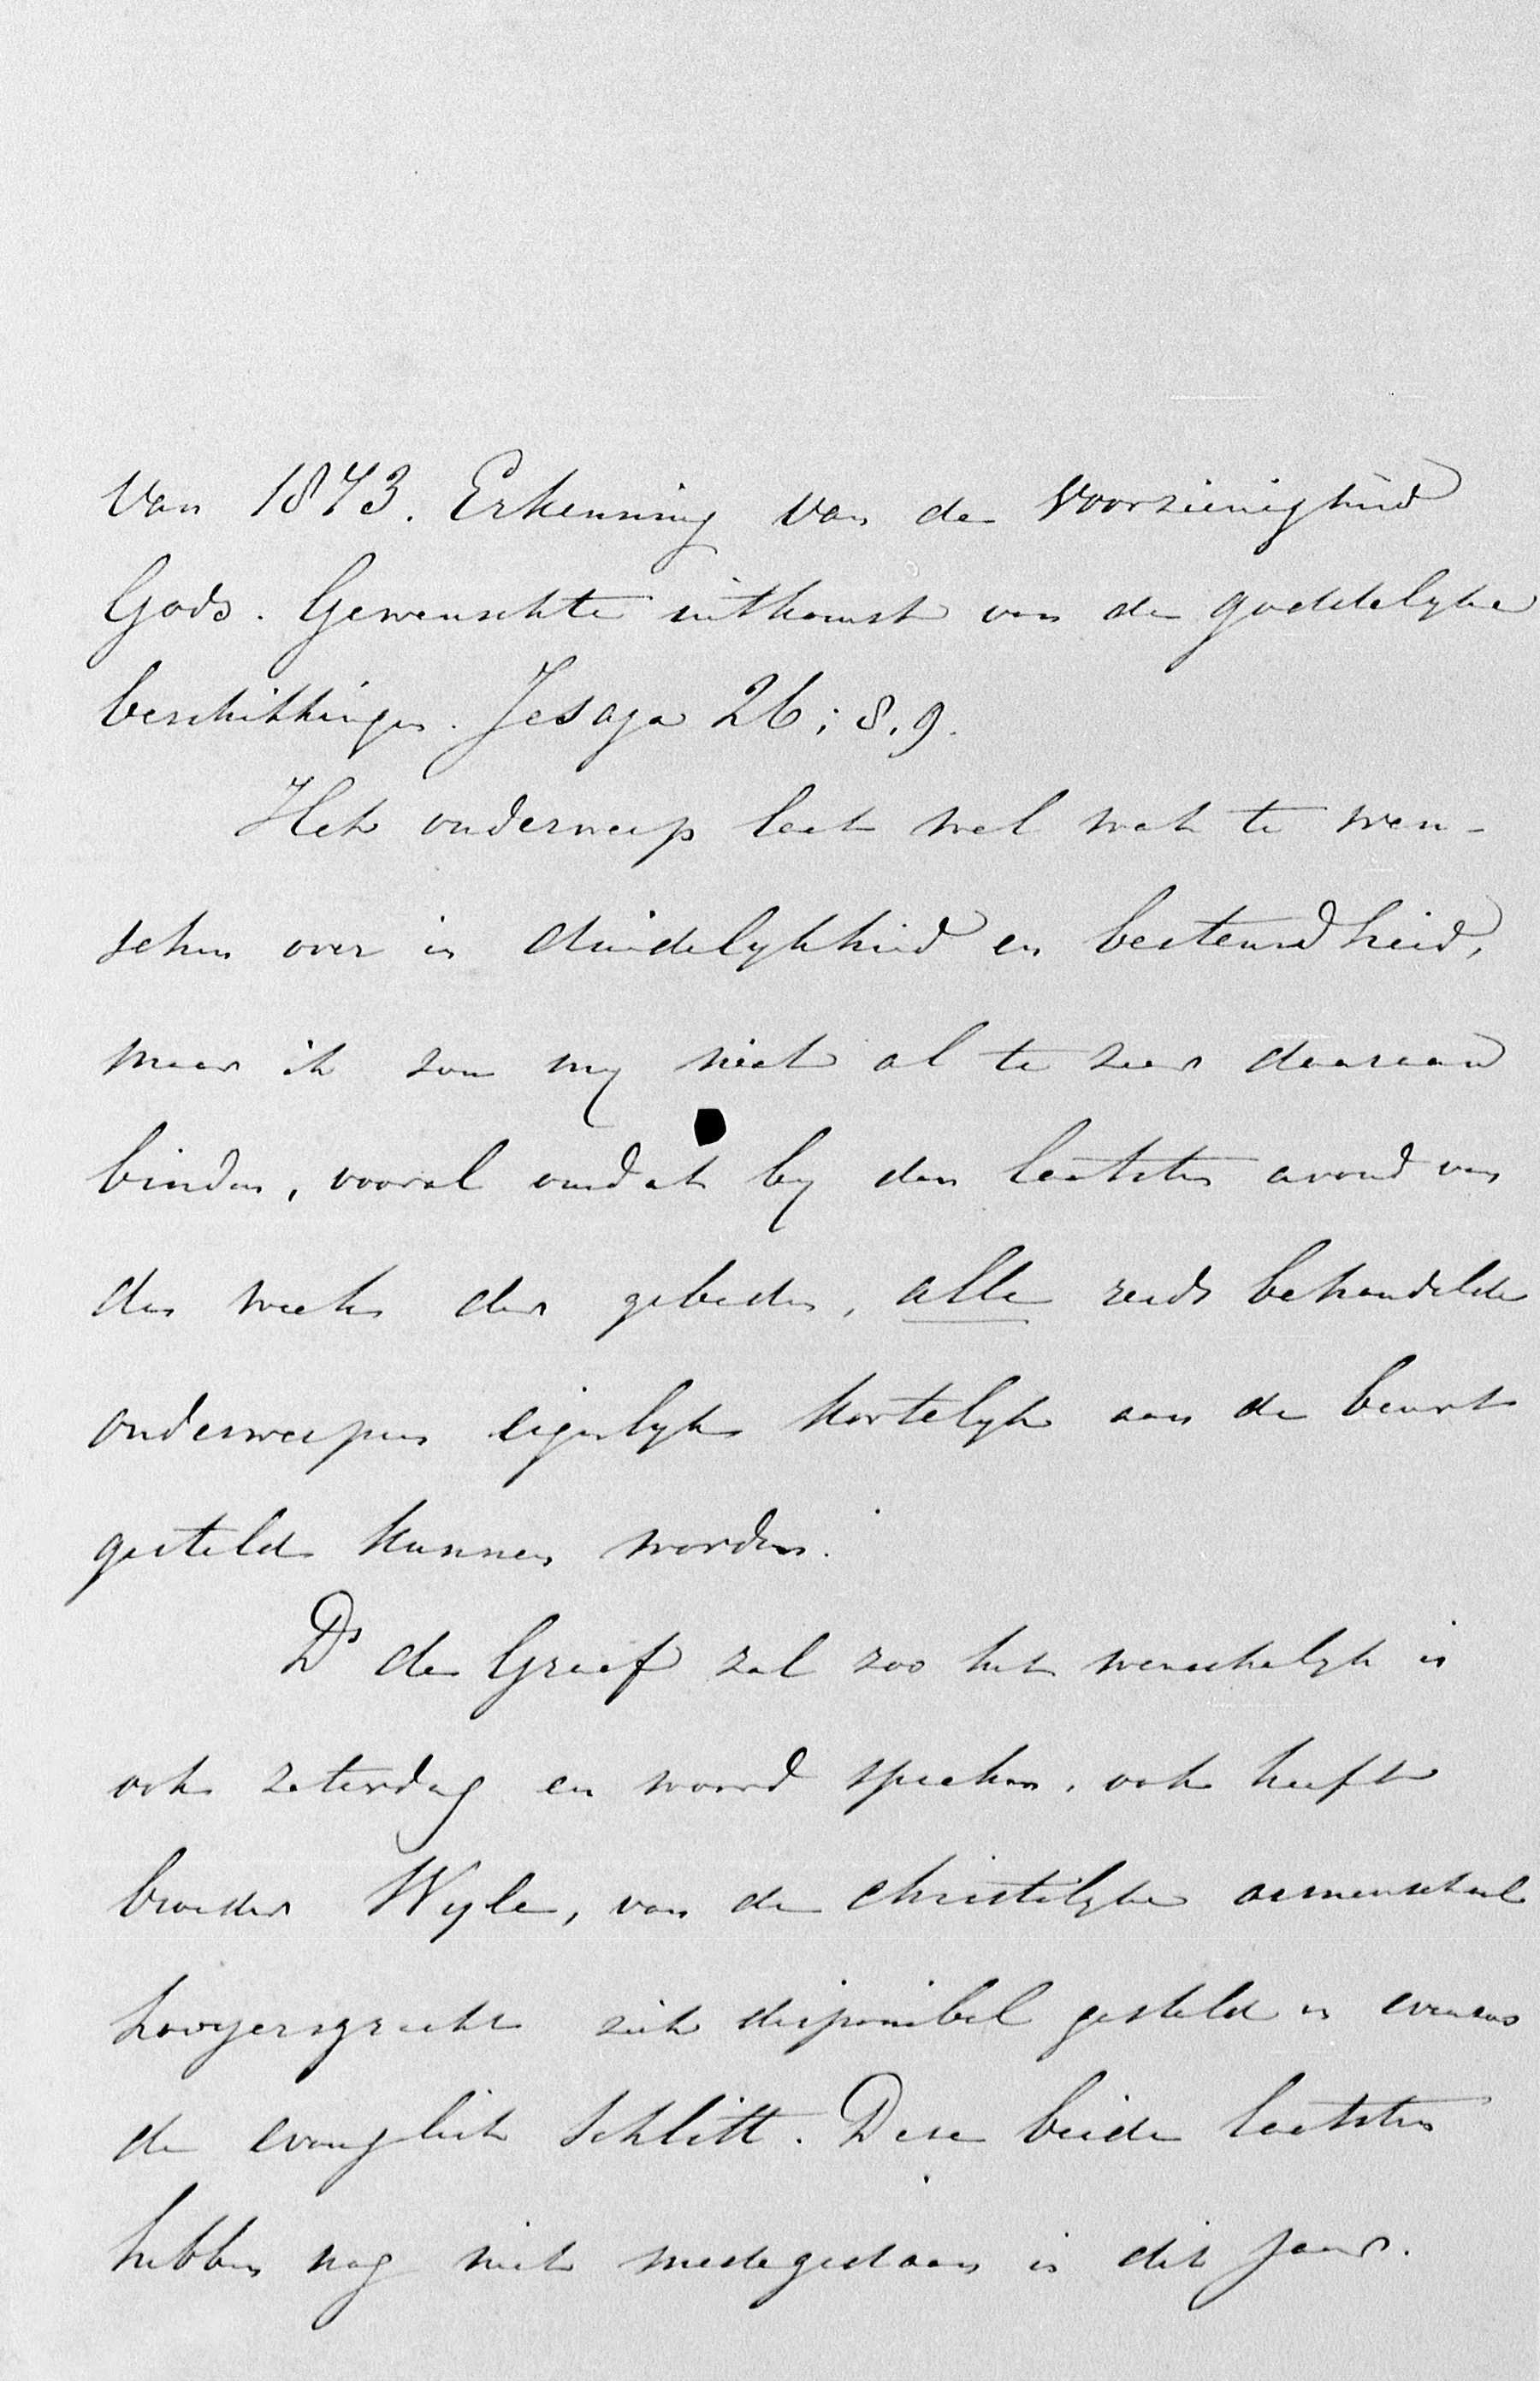 van 1873. Erkenning van de Voorzienigheid
Gods. Gewenschte uitkomst van de goddelyke
beschikkingen. Jesaja 26: 8, 9.
Het onderwerp laat wel wat te wen-
schen over in duidelykheid en bestemdheid,
maar ik zou my niet al te zeer daaraan
binden, vooral omdat by den laatsten avond van
de week der gebeden, alle reeds behandelde
onderwerpen eigenlyk kortelyk aan de beurt
gesteld kunnen worden.
Ds de Graaf zal zoo het wenschelyk is
ook zaterdag een woord spreken, ook heeft
broeder Wyle, van de christelyke armenschool
hooyersgracht zich disponibel gesteld en eveneens
de evangelist Schlitt. Deze beide laatsten
hebben nog niet medegedaan in dit jaar.